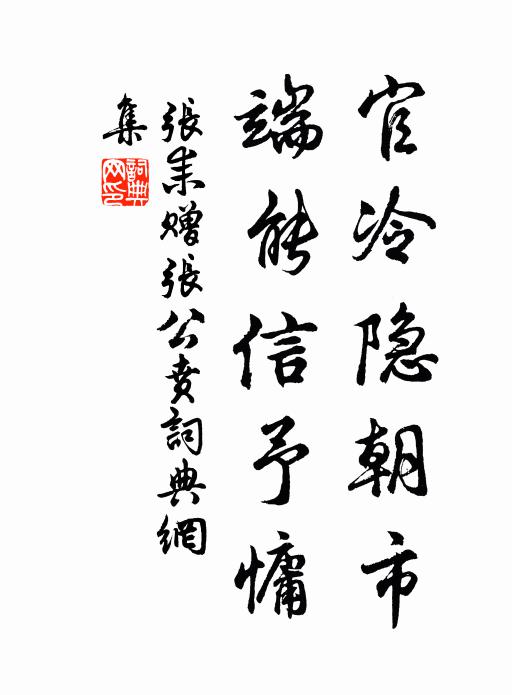 官冷隐朝市
端能信予慵
張耒贈張公賁詞典網
集
詞典
网印